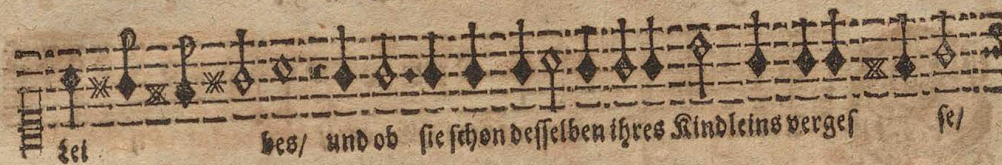 Lei bes/ und ob sie schon desselben ihres Kindleins verges se/